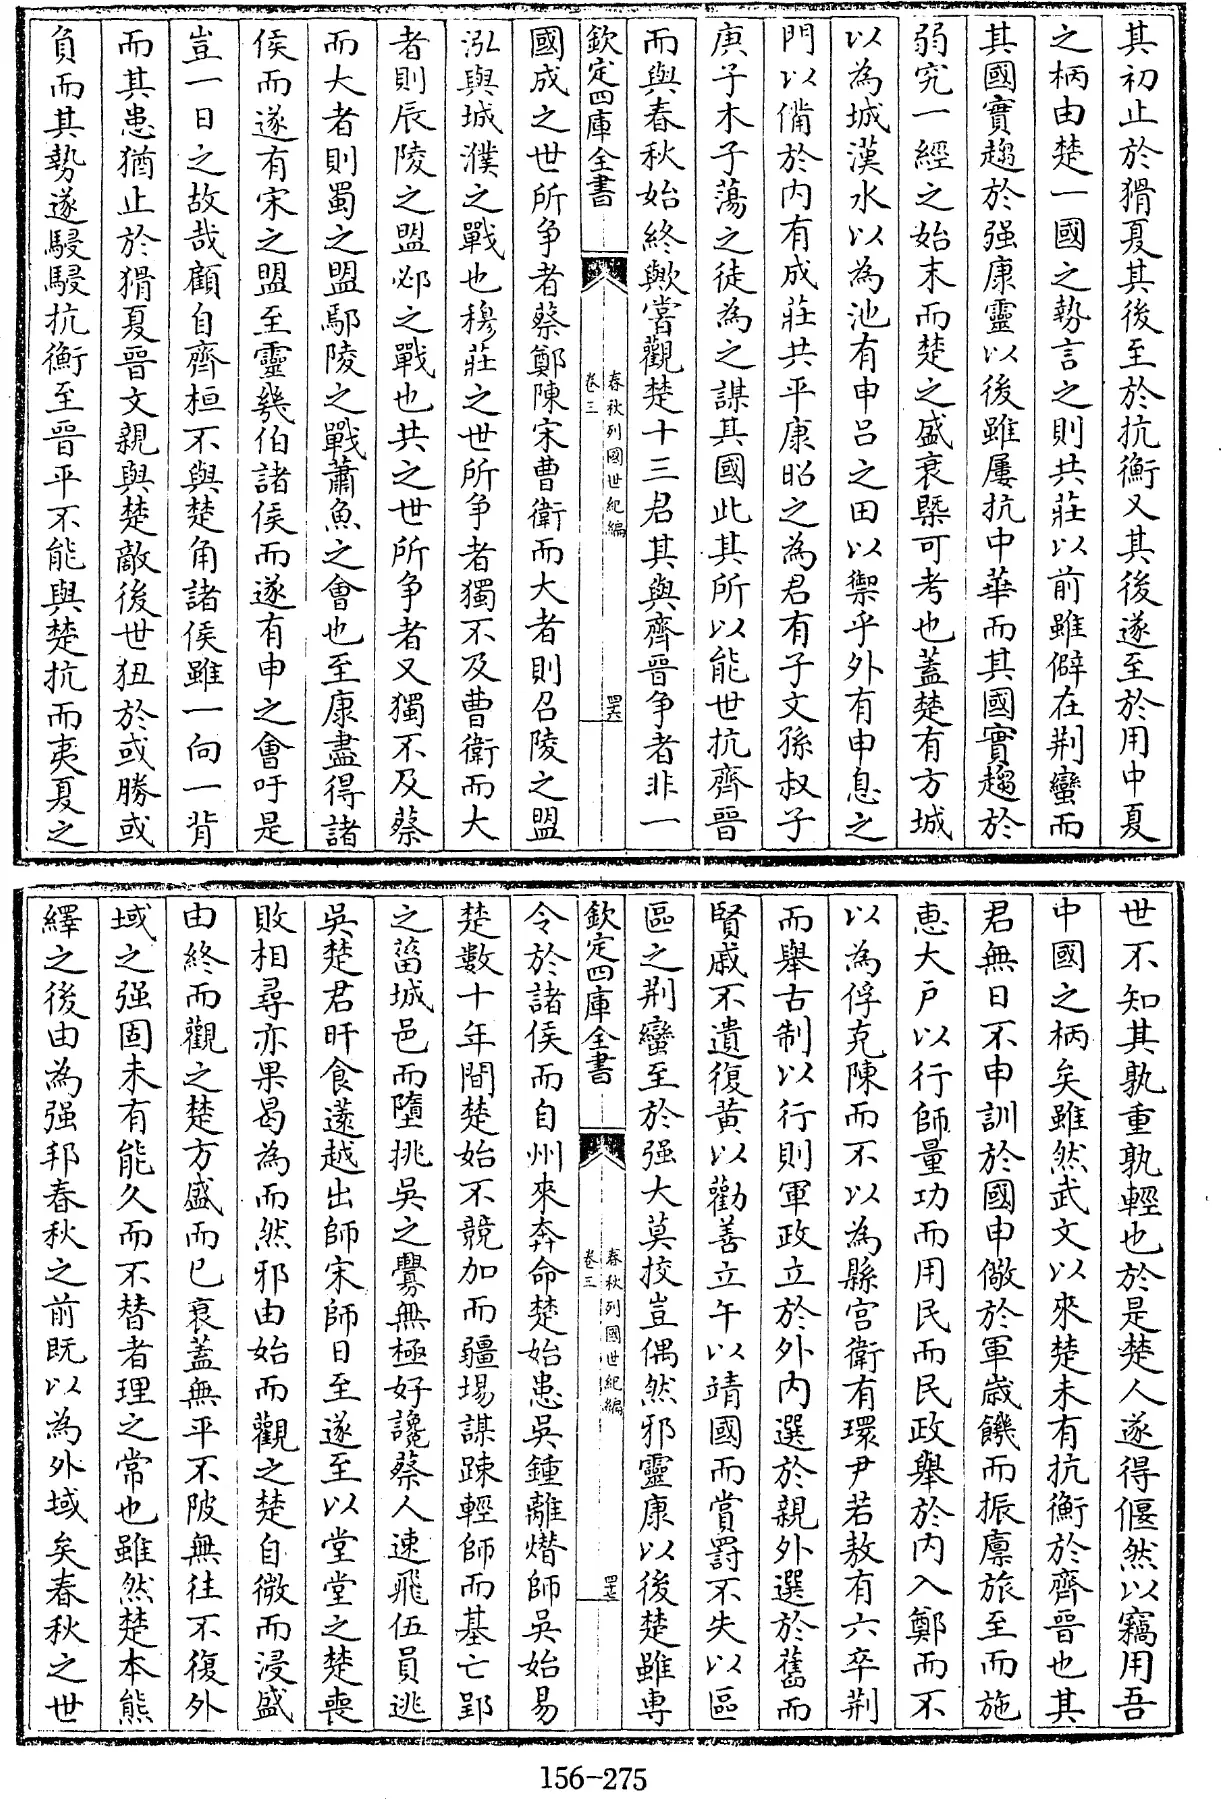 其初止於猾夏其後至於抗衡又其後遂至於用中夏
之柄由楚一國之勢言之則共莊以前雖僻在荆蠻而
其國實趨於强康靈以後雖屢抗中華而其國實趨於
弱究一經之始末而楚之盛衰槩可考也蓋楚有方城
以為城漢水以為池有申吕之田以禦乎外有申息之
門以備於内有成莊共平康昭之為君有子文孫叔子
庚子木子蕩之徒為之謀其國此其所以能世抗齊晉
而與春秋始終歟嘗觀楚十三君其與齊晉争者非一
欽定四庫全書
春秋列國世紀編
卷三
四十六
國成之世所争者蔡鄭陳宋曹衛而大者則召陵之盟
泓與城濮之戰也穆莊之世所争者獨不及曹衛而大
者則辰陵之盟邲之戰也共之世所争者又獨不及蔡
而大者則蜀之盟鄢陵之戰蕭魚之會也至康盡得諸
侯而遂有宋之盟至靈幾伯諸侯而遂有申之會吁是
豈一日之故哉顧自齊桓不與楚角諸侯雖一向一背
而其患猶止於猾夏晉文親與楚敵後世狃於或勝或
負而其勢遂駸駸抗衡至晉平不能與楚抗而夷夏之
世不知其孰重孰輕也於是楚人遂得偃然以竊用吾
中國之柄矣雖然武文以來楚未有抗衡於齊晉也其
君無日不申訓於國申儆於軍歲饑而振廪旅至而施
惠大戶以行師量功而用民而民政舉於内入鄭而不
以為俘克陳而不以為縣宫衛有環尹若敖有六卒荆
而舉古制以行則軍政立於外内選於親外選於舊而
賢戚不遺復黄以勸善立午以靖國而賞罰不失以區
區之荆蠻至於强大莫挍豈偶然邪靈康以後楚雖専
欽定四庫全書
春秋列國世紀編
卷三
四十七
令於諸侯而自州來奔命楚始患吳鍾離熸師吳始易
楚數十年間楚始不競加而疆埸謀踈輕師而基亡郢
之菑城邑而墮挑吳之釁無極好讒蔡人速飛伍員逃
吳楚君旰食薳越出師宋師日至遂至以堂堂之楚喪
敗相尋亦果曷為而然邪由始而觀之楚自微而浸盛
由終而觀之楚方盛而已衰蓋無平不陂無往不復外
域之强固未有能久而不替者理之常也雖然楚本熊
繹之後由為强邦春秋之前既以為外域矣春秋之世
156-275